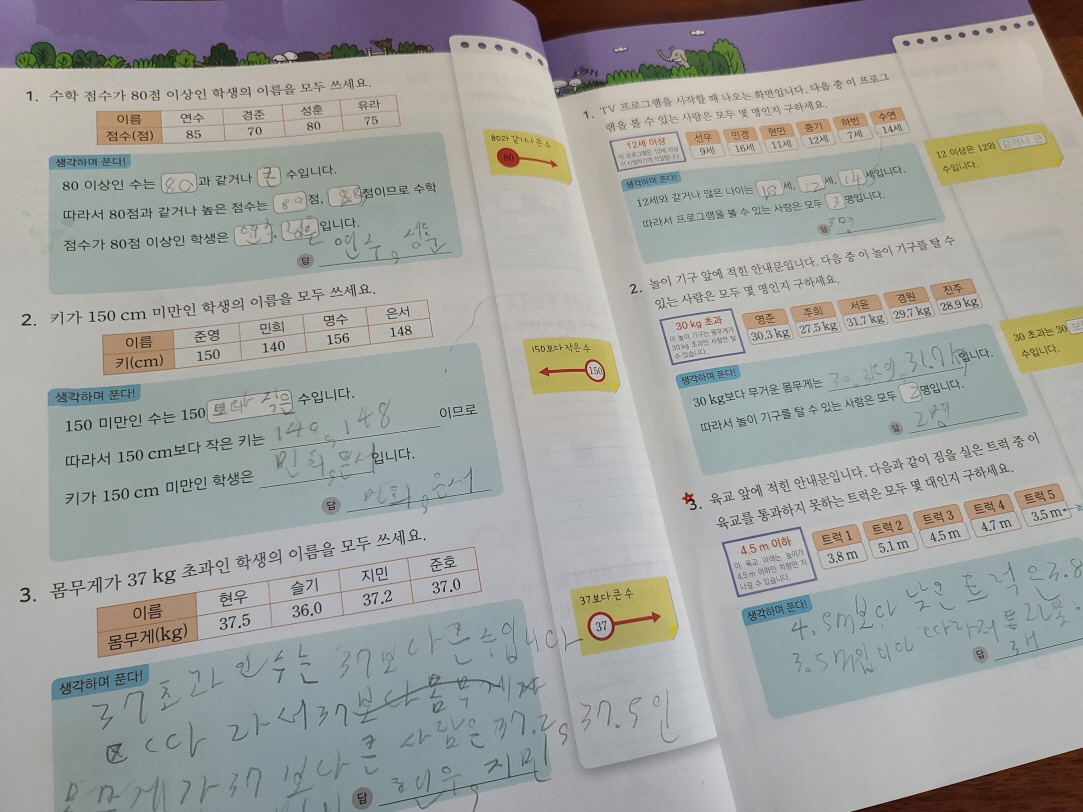 1. 수학 점수가 80점 이상인 학생의 이름을 모두 쓰세요.
이름 연수 경준 성훈 유라
점수(점) 85 70 80 75
생각하며 푼다!
80 이상인 수는 80과 같거나 큰 수입니다.
따라서 80점과 같거나 높은 점수는 80점, 85점이므로 수학
점수가 80점 이상인 학생은 연수, 성훈입니다.
답 연수, 성훈
80과 같거나 큰 수
80
2. 키가 150 cm 미만인 학생의 이름을 모두 쓰세요.
이름 준영 민희 명수 은서
키(cm) 150 140 156 148
생각하며 푼다!
150 미만인 수는 150 보다 작은 수입니다.
따라서 150 cm보다 작은 키는 140, 148 이므로
키가 150 cm 미만인 학생은 민희, 은서입니다.
답 민희, 은서
150보다 작은 수
150
3. 몸무게가 37 kg 초과인 학생의 이름을 모두 쓰세요.
이름 현우 슬기 지민 준호
몸무게(kg) 37.5 36.0 37.2 37.0
생각하며 푼다!
37초과인 수는 37보다 큰 수입니다
따라서 37보다 몸무게가
몸무게가 37보다 큰 사람은 37.2, 37.5인
답 현우, 지민
37보다 큰 수
37
1. TV 프로그램을 시작할 때 나오는 화면입니다. 다음 중 이 프로그
램을 볼 수 있는 사람은 모두 몇 명인지 구하세요.
12세 이상
이 프로그램은 12세 이상
이 시청하기에 적절합니다.
선우 민경 현민 중기 하빈 수연
9세 16세 11세 12세 7세 14세
생각하며 푼다!
12세와 같거나 많은 나이는 16세, 12세, 14세입니다.
따라서 프로그램을 볼 수 있는 사람은 모두 3명입니다.
답 3명
12 이상은 12와 같거나 큰
수입니다.
2. 놀이 기구 앞에 적힌 안내문입니다. 다음 중 이 놀이 기구를 탈 수
있는 사람은 모두 몇 명인지 구하세요.
30 kg 초과
이 놀이 기구는 몸무게가
30 kg 초과인 사람만 탈
수 있습니다.
명준 주희 서윤 경원 진주
30.3 kg 27.5 kg 31.7 kg 29.7 kg 28.9 kg
생각하며 푼다!
30 kg보다 무거운 몸무게는 31.7kg입니다.
따라서 놀이 기구를 탈 수 있는 사람은 모두 2명입니다.
답 2명
30 초과는 30
수입니다.
3. 육교 앞에 적힌 안내문입니다. 다음과 같이 짐을 실은 트럭 중 이
육교를 통과하지 못하는 트럭은 모두 몇 대인지 구하세요.
4.5 m 이하
이 육교 아래는 높이가
4.5 m 이하인 차량만 지
나갈 수 있습니다.
트럭 1 트럭 2 트럭 3 트럭 4 트럭 5
3.8 m 5.1 m 4.5 m 4.7 m 3.5 m
생각하며 푼다!
4.5m보다 낮은 트럭은 3.8
3.5m입니다 따라서
답